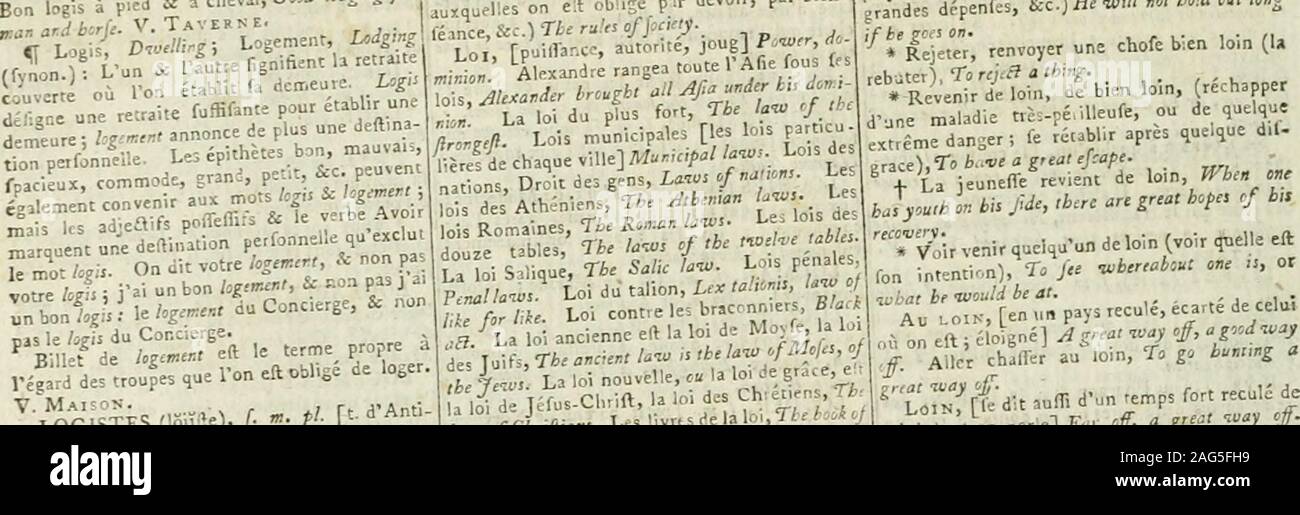 Bon logis à pied & à cheval,
man and horſe. V. TAVERNE.
¶ Logis, Dwelling; Logement, Lodging
(ſynon.): L'un & l'autre ſignifient la retraite
couverte où l'on établit ſa demeure. Logis
déſigne une retraite ſuffiſante pour établir une
demeure; logement annonce de plus une deſtina-
tion perſonnelle. Les épithètes bon, mauvais,
ſpacieux, commode, grand, petit, &c. peuvent
également convenir aux mots logis & logement;
mais les adjectifs poſſeſſifs & le verbe Avoir
marquent une deſtination perſonnelle qu'exclut
le mot logis. On dit votre logement, & non pas
votre logis; j'ai un bon logement, & non pas j'ai
un bon logis: le logement du Concierge, & non
pas le logis du Concierge.
Billet de logement eſt le terme propre à
l'égard des troupes que l'on eſt obligé de loger.
V. MAISON.
LOGISTES ſ. m. pl. [t. d'Anti-
auxquelles on eſt obligé par devoir, par
ſéance, &c.) The rules of ſociety.
LOI, [puiſſance, autorité, joug] Power, do-
minion. Alexandre rangea toute l'Aſie ſous ſes
lois, Alexander brought all Aſia under his domi-
nion. La loi du plus fort, The law of the
ſtrongeſt. Lois municipales [les lois particu-
lières de chaque ville] Municipal laws. Lois des
nations, Droit des gens, Laws of nations. Les
lois des Athéniens, The Athenian laws. Les
lois Romaines, The Roman laws. Les lois des
douze tables, The laws of the twelve tables.
La loi Salique, The Salic law. Lois pénales,
Penal laws. Loi du talion, Lex talionis, law of
like for like. Loi contre les braconniers, Black
act. La loi ancienne eſt la loi de Moyſe, la loi
des Juifs, The ancient law is the law of Moſes, of
the Jews. La loi nouvelle, ou la loi de grâce, eſt
la loi de Jéſus-Chriſt, la loi des Chrétiens, The
Les livres de la loi, The book of
grandes dépenſes, &c.) He will not hold out long
if he goes on.
* Rejeter, renvoyer une choſe bien loin (la
rebuter), To reject a thing.
* Revenir de loin, de bien loin, (réchapper
d'une maladie très-périlleuſe, ou de quelque
extrême danger; ſe rétablir après quelque diſ-
grace), To have a great eſcape.
† La jeuneſſe revient de loin, When one
has youth on his ſide, there are great hopes of his
recovery.
* Voir venir quelqu'un de loin (voir quelle eſt
ſon intention), To ſee whereabout one is, or
what he would be at.
AU LOIN, [en un pays reculé, écarté de celui
où on eſt; éloigné] A great way off, a good way
off. Aller chaſſer au loin, To go hunting a
great way off.
LOIN, [ſe dit auſſi d'un temps fort reculé de
Far off, a great way off.
alamy
Image ID: 2AG5FH9
www.alamy.com